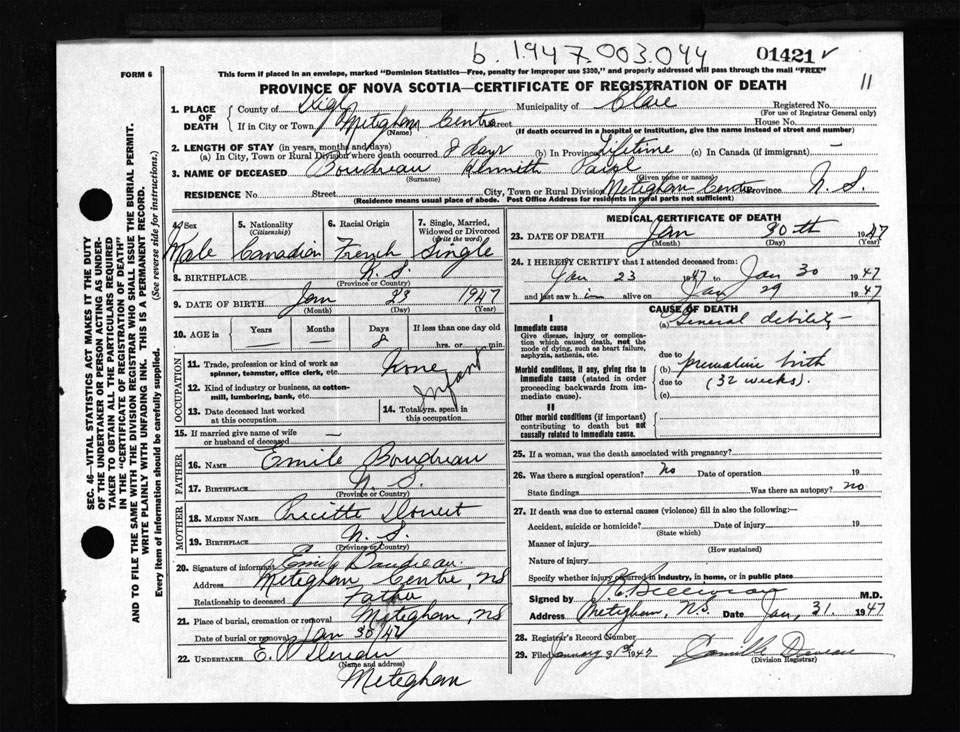 b. 1947.003.044
01421
11
FORM 6
This form if placed in an envelope, marked "Dominion Statistics—Free, penalty for improper use $300," and properly addressed will pass through the mail "FREE"
PROVINCE OF NOVA SCOTIA—CERTIFICATE OF REGISTRATION OF DEATH
1. PLACE OF DEATH County of Digby Municipality of Clare Registered No.
(For use of Registrar General only)
If in City or Town Meteghan Centre Street House No.
(Name) (If death occurred in a hospital or institution, give the name instead of street and number)
2. LENGTH OF STAY (in years, months and days)
(a) In City, Town or Rural Division where death occurred 8 days (b) In Province Lifetime (c) In Canada (if immigrant) —
3. NAME OF DECEASED Boudreau
(Surname) (Given name or names)
RESIDENCE No. Street City, Town or Rural Division Meteghan Centre Province N. S.
(Residence means usual place of abode. Post Office Address for residents in rural parts not sufficient)
SEC. 46—VITAL STATISTICS ACT MAKES IT THE DUTY
OF THE UNDERTAKER OR PERSON ACTING AS UNDER-
TAKER TO OBTAIN ALL THE PARTICULARS REQUIRED
IN THE "CERTIFICATE OF REGISTRATION OF DEATH"
AND TO FILE THE SAME WITH THE DIVISION REGISTRAR WHO SHALL ISSUE THE BURIAL PERMIT.
WRITE PLAINLY WITH UNFADING INK. THIS IS A PERMANENT RECORD.
Every item of information should be carefully supplied. (See reverse side for instructions.)
4. Sex 5. Nationality (Citizenship) 6. Racial Origin 7. Single, Married, Widowed or Divorced (write the word)
Male Canadian French Single
8. BIRTHPLACE N. S.
(Province or Country)
9. DATE OF BIRTH Jan 23 1947
(Month) (Day) (Year)
10. AGE in Years Months Days If less than one day old
8 hrs. or min.
OCCUPATION
11. Trade, profession or kind of work as spinner, teamster, office clerk, etc. None
Infant
12. Kind of industry or business, as cotton-mill, lumbering, bank, etc.
13. Date deceased last worked at this occupation
14. Total yrs. spent in this occupation
15. If married give name of wife or husband of deceased —
FATHER
16. NAME Emile Boudreau
17. BIRTHPLACE N. S.
(Province or Country)
MOTHER
18. MAIDEN NAME
19. BIRTHPLACE N. S.
(Province or Country)
20. Signature of informant Emile Boudreau
Address Meteghan Centre, NS
Relationship to deceased Father
21. Place of burial, cremation or removal Meteghan, NS
Date of burial or removal Jan 30/47
22. UNDERTAKER E.
(Name and address)
Meteghan
MEDICAL CERTIFICATE OF DEATH
23. DATE OF DEATH Jan 30th 1947
(Month) (Day) (Year)
24. I HEREBY CERTIFY that I attended deceased from:
Jan 23 1947 to Jan 30 1947
and last saw him alive on Jan 29 1947
CAUSE OF DEATH
I
Immediate cause
Give disease, injury or complication which caused death, not the mode of dying, such as heart failure, asphyxia, asthenia, etc.
(a) General debility —
due to
Morbid conditions, if any, giving rise to immediate cause (stated in order proceeding backwards from immediate cause).
(b) premature birth
due to (32 weeks).
(c)
II
Other morbid conditions (if important) contributing to death but not causally related to immediate cause.
25. If a woman, was the death associated with pregnancy?
26. Was there a surgical operation? No Date of operation 19
State findings Was there an autopsy? no
27. If death was due to external causes (violence) fill in also the following:—
Accident, suicide or homicide? Date of injury 19
(State which)
Manner of injury
(How sustained)
Nature of injury
Specify whether injury occurred in industry, in home, or in public place
Signed by M.D.
Address Meteghan, N.S. Date Jan, 31. 1947
28. Registrar's Record Number
29. Filed January 31st 1947
(Division Registrar)